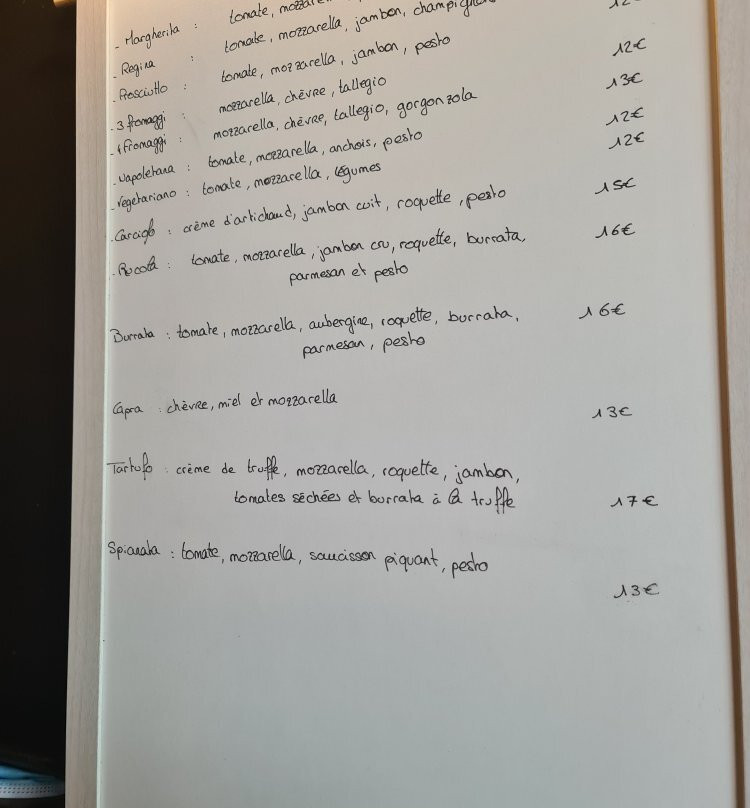 - Margherita : tomate, mozzarel
- Regina : tomate, mozzarella, jambon, champign
- Prosciutto : tomate, mozzarella, jambon, pesto 12€
- 3 fromaggi : mozzarella, chèvre, tallegio 13€
- 4 fromaggi : mozzarella, chèvre, tallegio, gorgonzola
- Napoletana : tomate, mozzarella, anchois, pesto 12€
- Vegetariano : tomate, mozzarella, légumes 12€
- Carciofo : crème d'artichaud, jambon cuit, roquette, pesto 15€
- Rucola : tomate, mozzarella, jambon cru, roquette, burrata, 16€
parmesan et pesto
Burrata : tomate, mozzarella, aubergine, roquette, burrata, 16€
parmesan, pesto
Capra : chèvre, miel et mozzarella 13€
Tartufo : crème de truffe, mozzarella, roquette, jambon,
tomates séchées et burrata à la truffe 17€
Spianata : tomate, mozzarella, saucisson piquant, pesto
13€